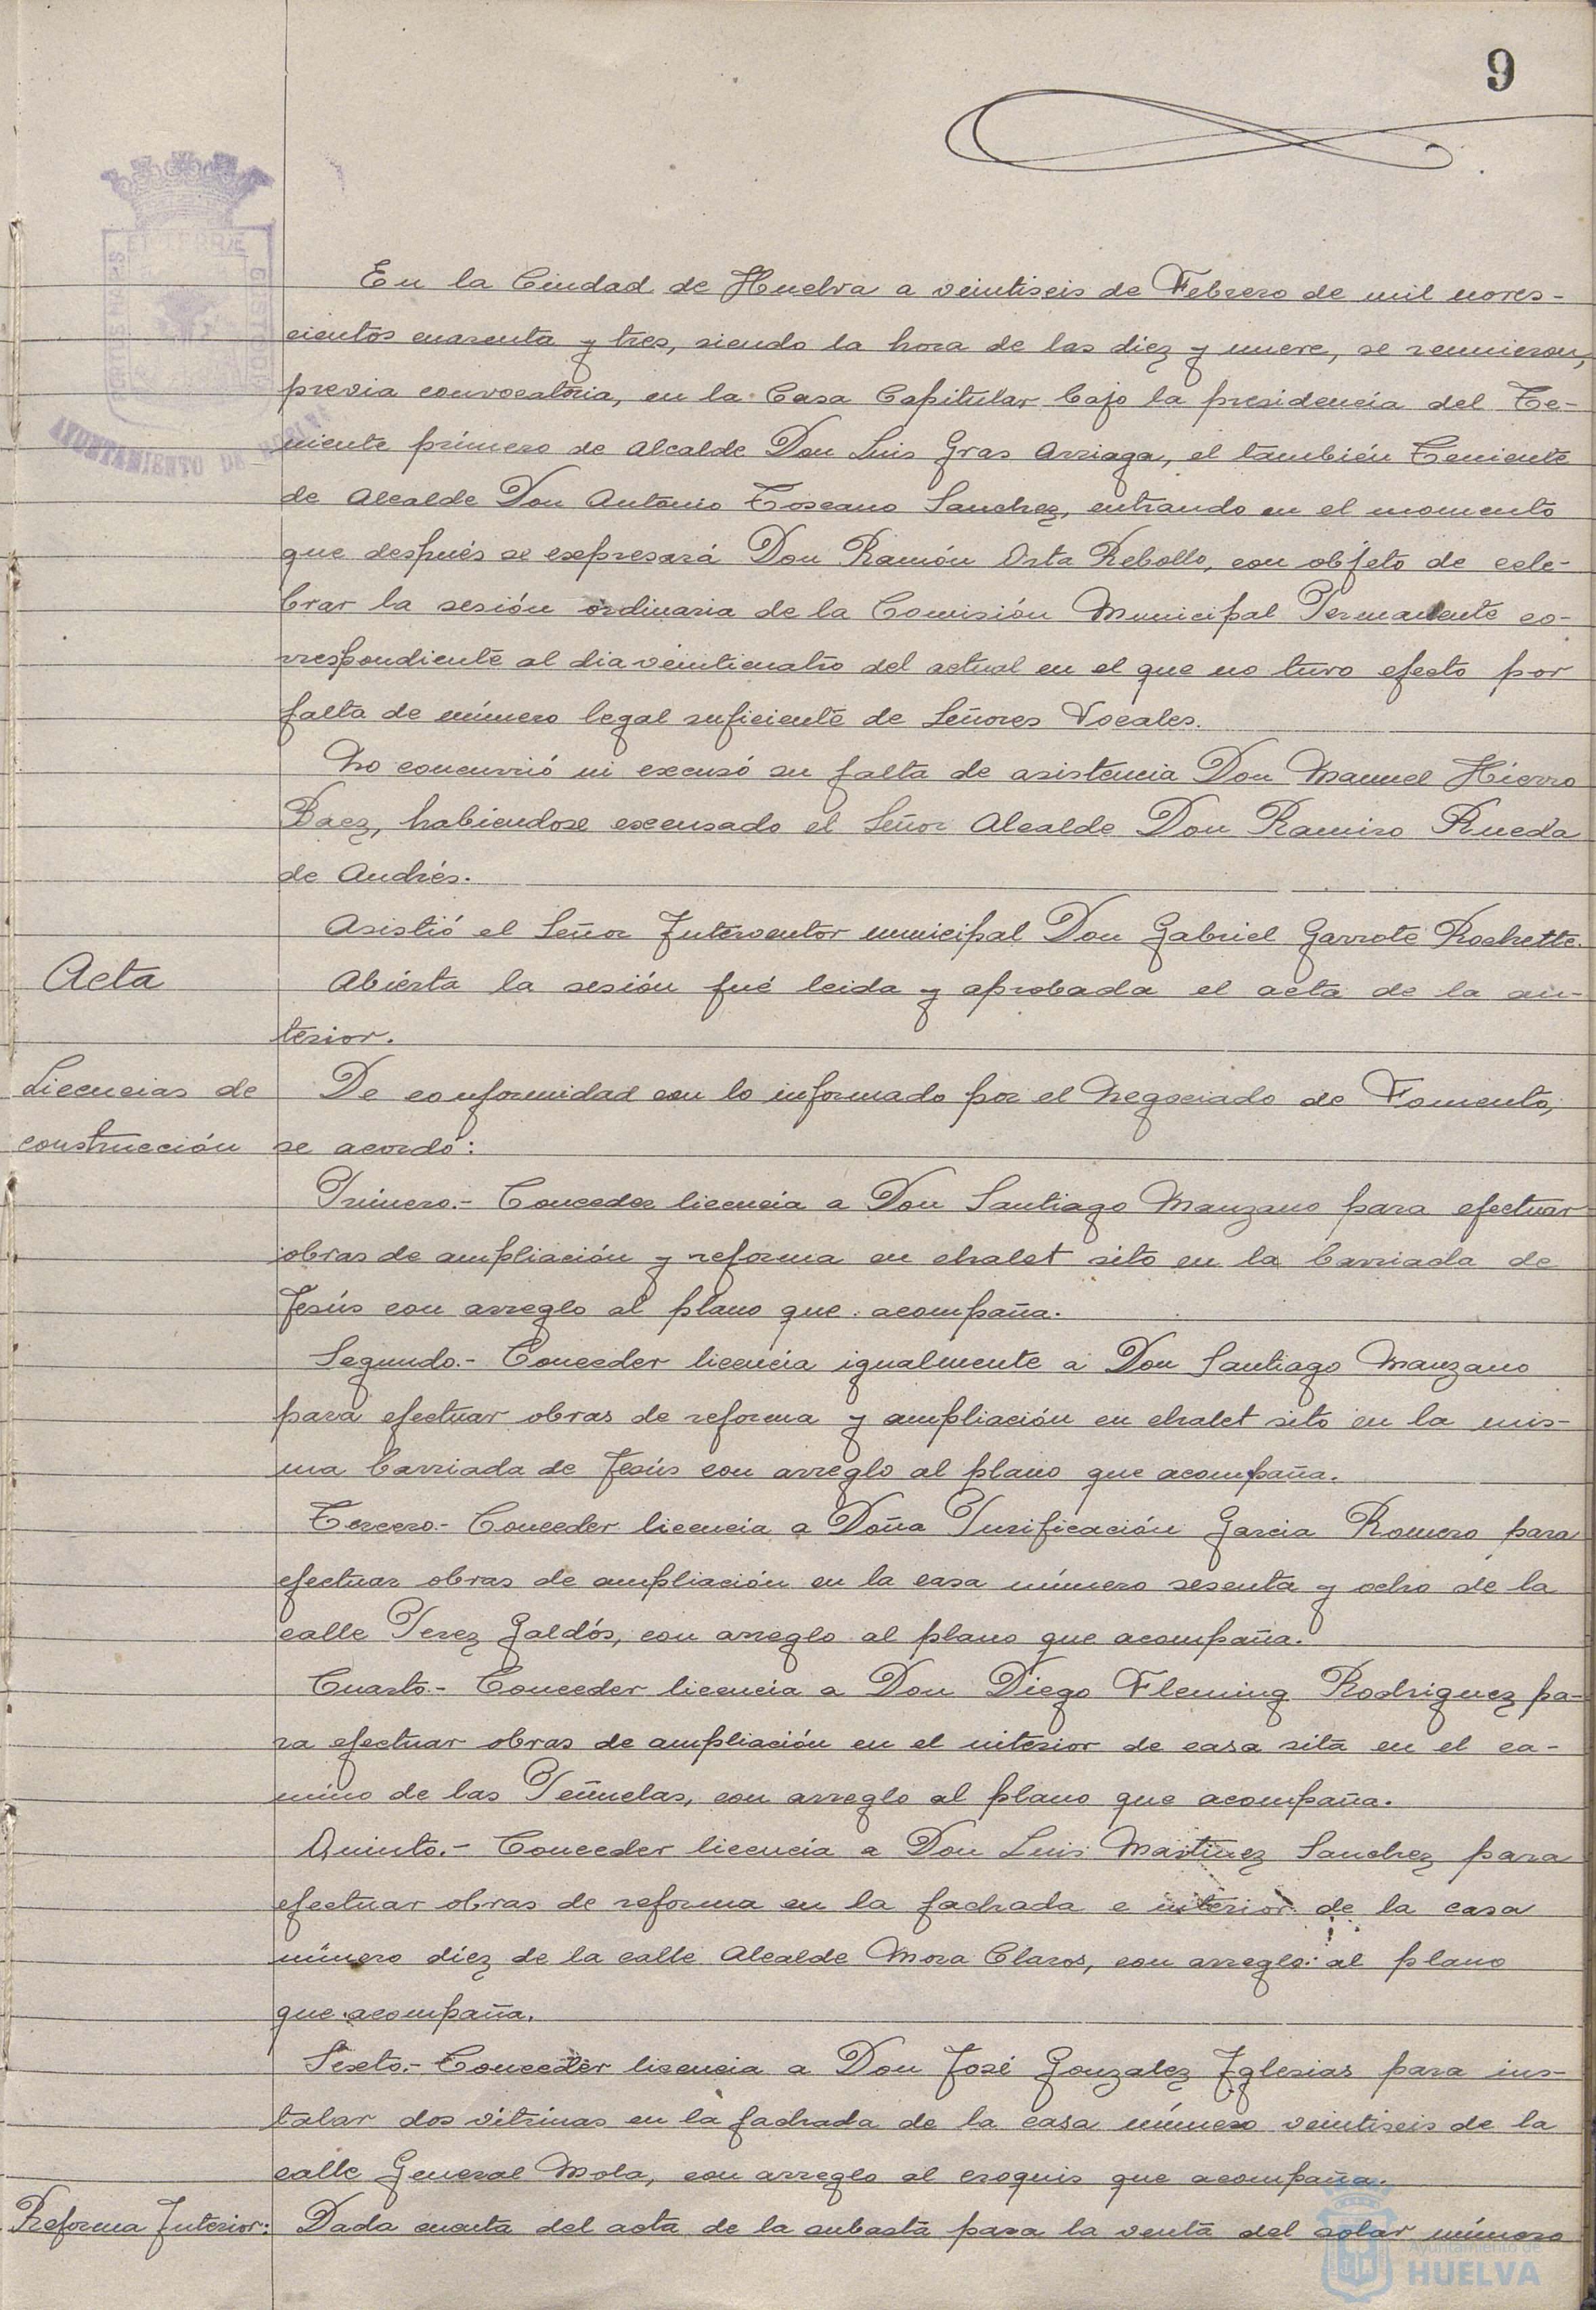 9
En la Ciudad de Huelva a veintiseis de Febrero de mil noves-
cientos cuarenta y tres, siendo la hora de las diez y nueve, se reunieron,
previa convocatoria, en la Casa Capitular bajo la presidencia del Te-
niente primero de Alcalde Don Luis Gras Arriaga, el también Teniente
de Alcalde Don Antonio Toscano Sanchez, entrando en el momento
que después se expresará Don Ramón Orta Rebollo, con objeto de cele-
brar la sesión ordinaria de la Comisión Municipal Permanente co-
rrespondiente al dia veinticuatro del actual en el que no tuvo efecto por
falta de número legal suficiente de Señores Vocales.
No concurrió ni excusó su falta de asistencia Don Manuel Hierro
Baez, habiendose excusado el Señor Alcalde Don Ramiro Rueda
de Andrés.
Asistió el Señor Interventor municipal Don Gabriel Garrote Rochette.
Acta
Abierta la sesión fué leida y aprobada el acta de la an-
terior.
Licencias de
construcción
De conformidad con lo informado por el Negociado de Fomento,
se acordó:
Primero.- Conceder licencia a Don Santiago Manzano para efectuar
obras de ampliación y reforma en chalet sito en la barriada de
Jesús con arreglo al plano que acompaña.
Segundo.- Conceder licencia igualmente a Don Santiago Manzano
para efectuar obras de reforma y ampliación en chalet sito en la mis-
ma barriada de Jesús con arreglo al plano que acompaña.
Tercero.- Conceder licencia a Doña Purificación Garcia Romero para
efectuar obras de ampliación en la casa número sesenta y ocho de la
calle Perez Galdós, con arreglo al plano que acompaña.
Cuarto.- Conceder licencia a Don Diego Fleming Rodriguez pa-
ra efectuar obras de ampliación en el interior de casa sita en el ca-
mino de las Peñuelas, con arreglo al plano que acompaña.
Quinto.- Conceder licencia a Don Luis Martinez Sanchez para
efectuar obras de reforma en la fachada e interior de la casa
número diez de la calle Alcalde Mora Claros, con arreglo al plano
que acompaña.
Sexto.- Conceder licencia a Don José Gonzalez Iglesias para ins-
talar dos vitrinas en la fachada de la casa número veintiseis de la
calle General Mola, con arreglo al croquis que acompaña.
Reforma Interior:
Dada cuenta del acta de la subasta para la venta del solar número
AYUNTAMIENTO DE
Ayuntamiento de
HUELVA